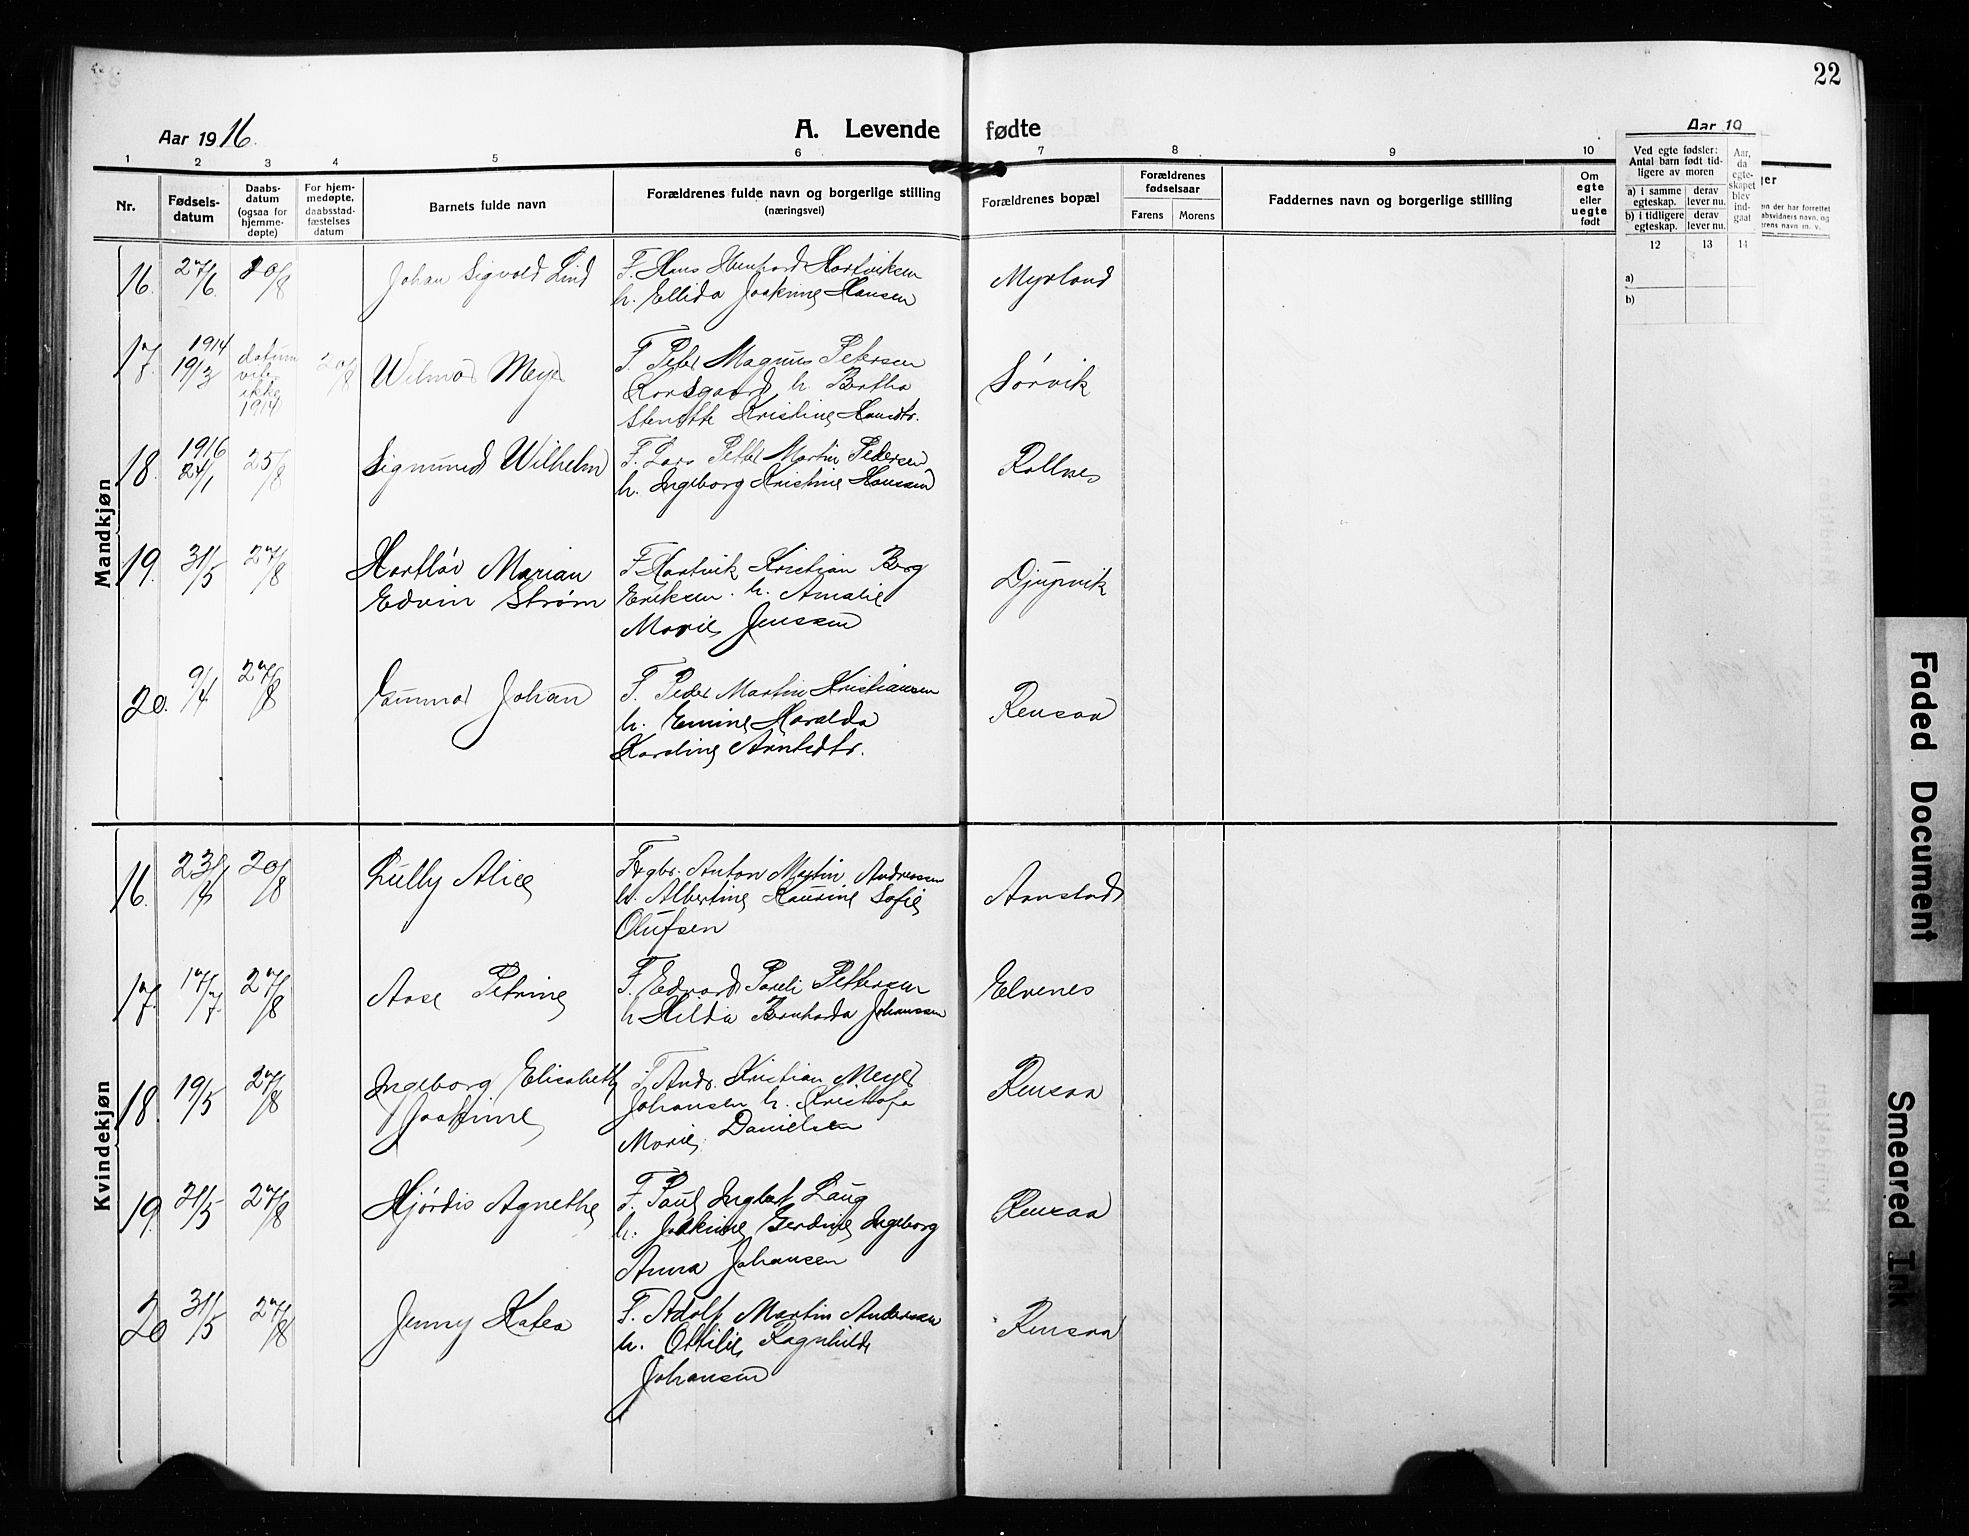 22
Aar 1916.
A. Levende fødte
Aar 19
1 2 3 4 5 6 7 8 9 10
Nr.
Fødsels-
datum
Daabs-
datum
(ogsaa for
hjemme-
døpte)
For hjem-
medøpte,
daabsstad-
fæstelses
datum
Barnets fulde navn
Forældrenes fulde navn og borgerlige stilling
(næringsvei)
Forældrenes bopæl
Forældrenes
fødselsaar
Farens Morens
Faddernes navn og borgerlige stilling
Om
egte
eller
uegte
født
Ved egte fødsler:
Antal barn født tid-
ligere av moren
a) i samme
egteskap.
derav
lever nu.
b) i tidligere
egteskap.
derav
lever nu.
Aar,
da
egte-
skapet
blev
ind-
gaat
12 13 14
a)
b)
Mandkjøn
16. 27/6. 20/8 Johan Sigvald Lind
F. Hans Ebenhard Hartviksen
h. Ellida Joakine Hansen
Myrland
17. 1914 19/3 datum
ikke
1914
20/8 Wilmar Meyer
F. Peter Magnus Petersen
Korsgaard h. Bertha
Kristine
Sørvik
18. 1916 24/1 25/8 Sigmund Wilhelm
F. Lars Petter Martin Pedersen
h. Ingeborg Kristine Hansen
Rollnes
19. 31/5 27/8 Hartløv Marian
Edvin Strøm
F. Hartvik Kristian Berg
Eriksen. h. Amalie
Marie Jenssen
Djupvik
20. 9/4 27/8 Gunnar Johan
F. Peder Martin Kristiansen
h. Emine Haralda
Karoline Arntsdtr.
Rensaa
Kvindekjøn
16. 23/4 20/8 Lully Alice
Fxgbr. Anton Martin Andreassen
h. Albertine Laurine Sofie
Olufsen
Aanstad
17. 17/7. 27/8 Aase Petrine
F. Edvard Pareli Pettersen
h Hilda Bernharda Johanssen
Elvenes
18. 19/5 27/8 Ingeborg Elisabeth
Joakime
F. Andr. Kristian Meyer
Johansen h. Kristofa
Marie Danielsen
Rensaa
19. 21/5 27/8 Hjørdis Agnethe
F. Paul Ingbret Laug
h. Joakine Gerdine Ingeborg
Anna Johansen
Rensaa
20 31/5 27/8 Jenny Katea
F. Adolf Martin Andersen
h. Ottilie Ragnhilde
Johansen
Rensaa
Faded Document
Smeared Ink